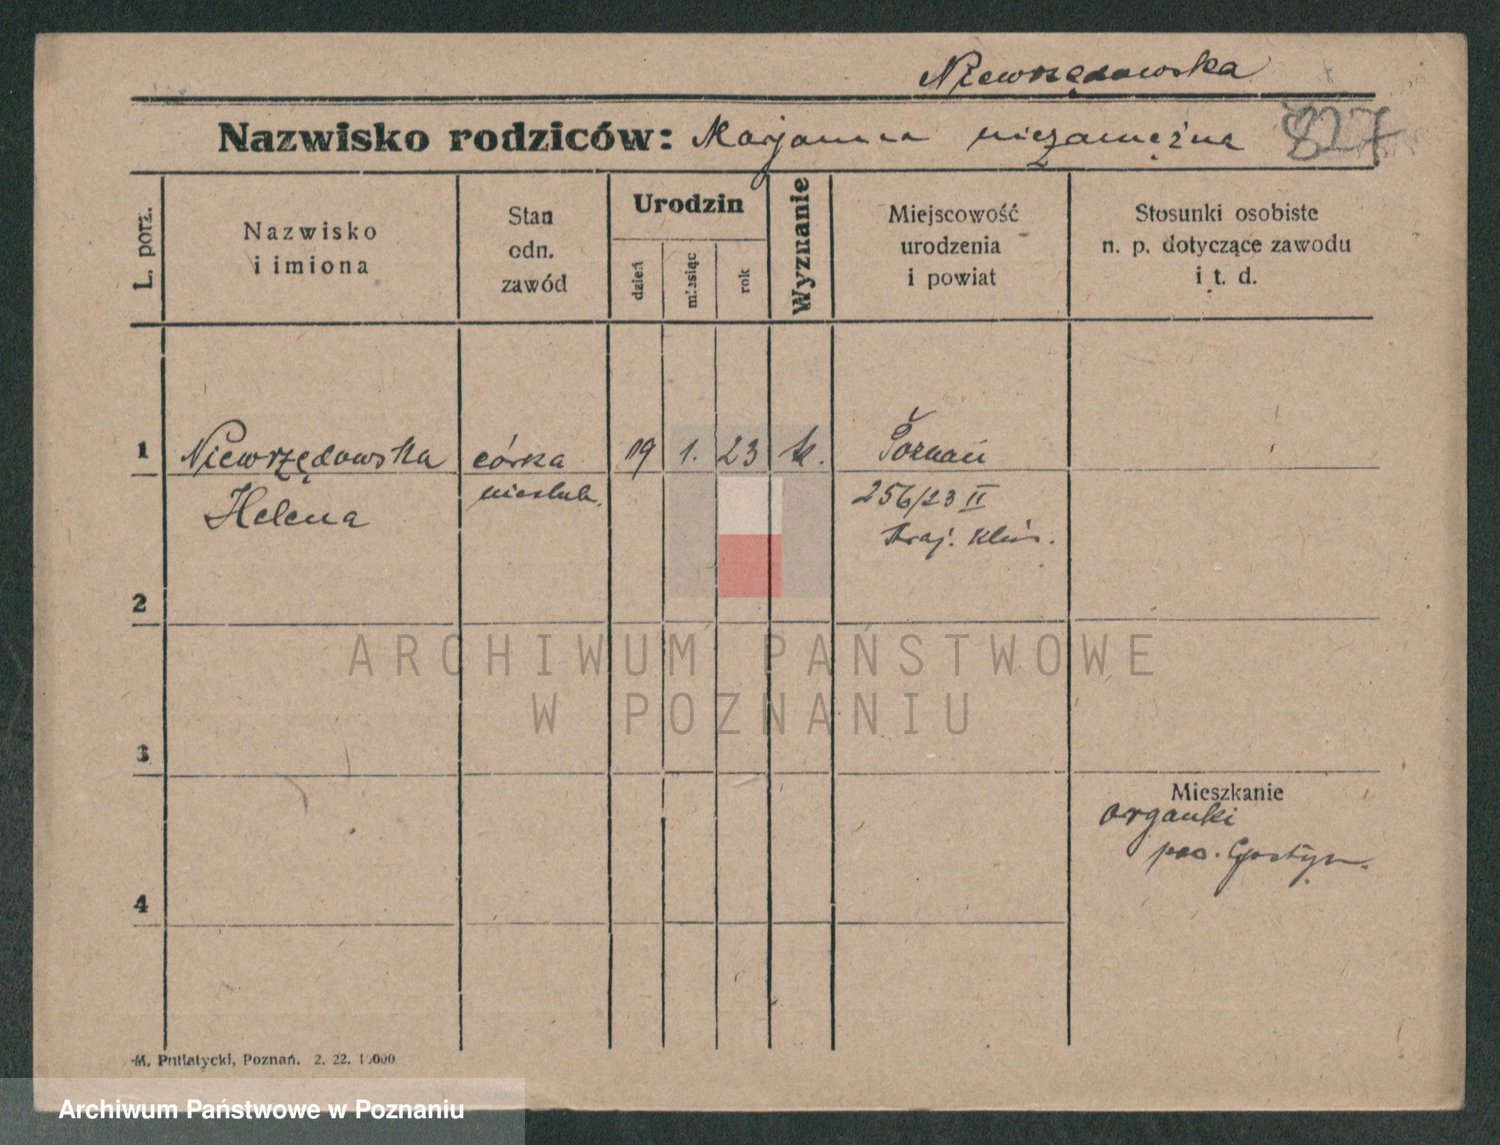 Niewrzędowska
Nazwisko rodziców: Marjanna niezamężna 827
L. porz.
Nazwisko
i imiona
Stan
odn.
zawód
Urodzin
dzień
miesiąc
rok
Wyznanie
Miejscowość
urodzenia
i powiat
Stosunki osobiste
n. p. dotyczące zawodu
i t. d.
1 Niewrzędowska córka 19 1. 23 k. Poznań
Helena nieślub. 256/23 II
Kraj. Klin.
2
ARCHIWUM PAŃSTWOWE
W POZNANIU
3
Mieszkanie
Organki
pow. Gostyn.
4
M. Putiatycki, Poznań. 2. 22. 1.000
Archiwum Państwowe w Poznaniu